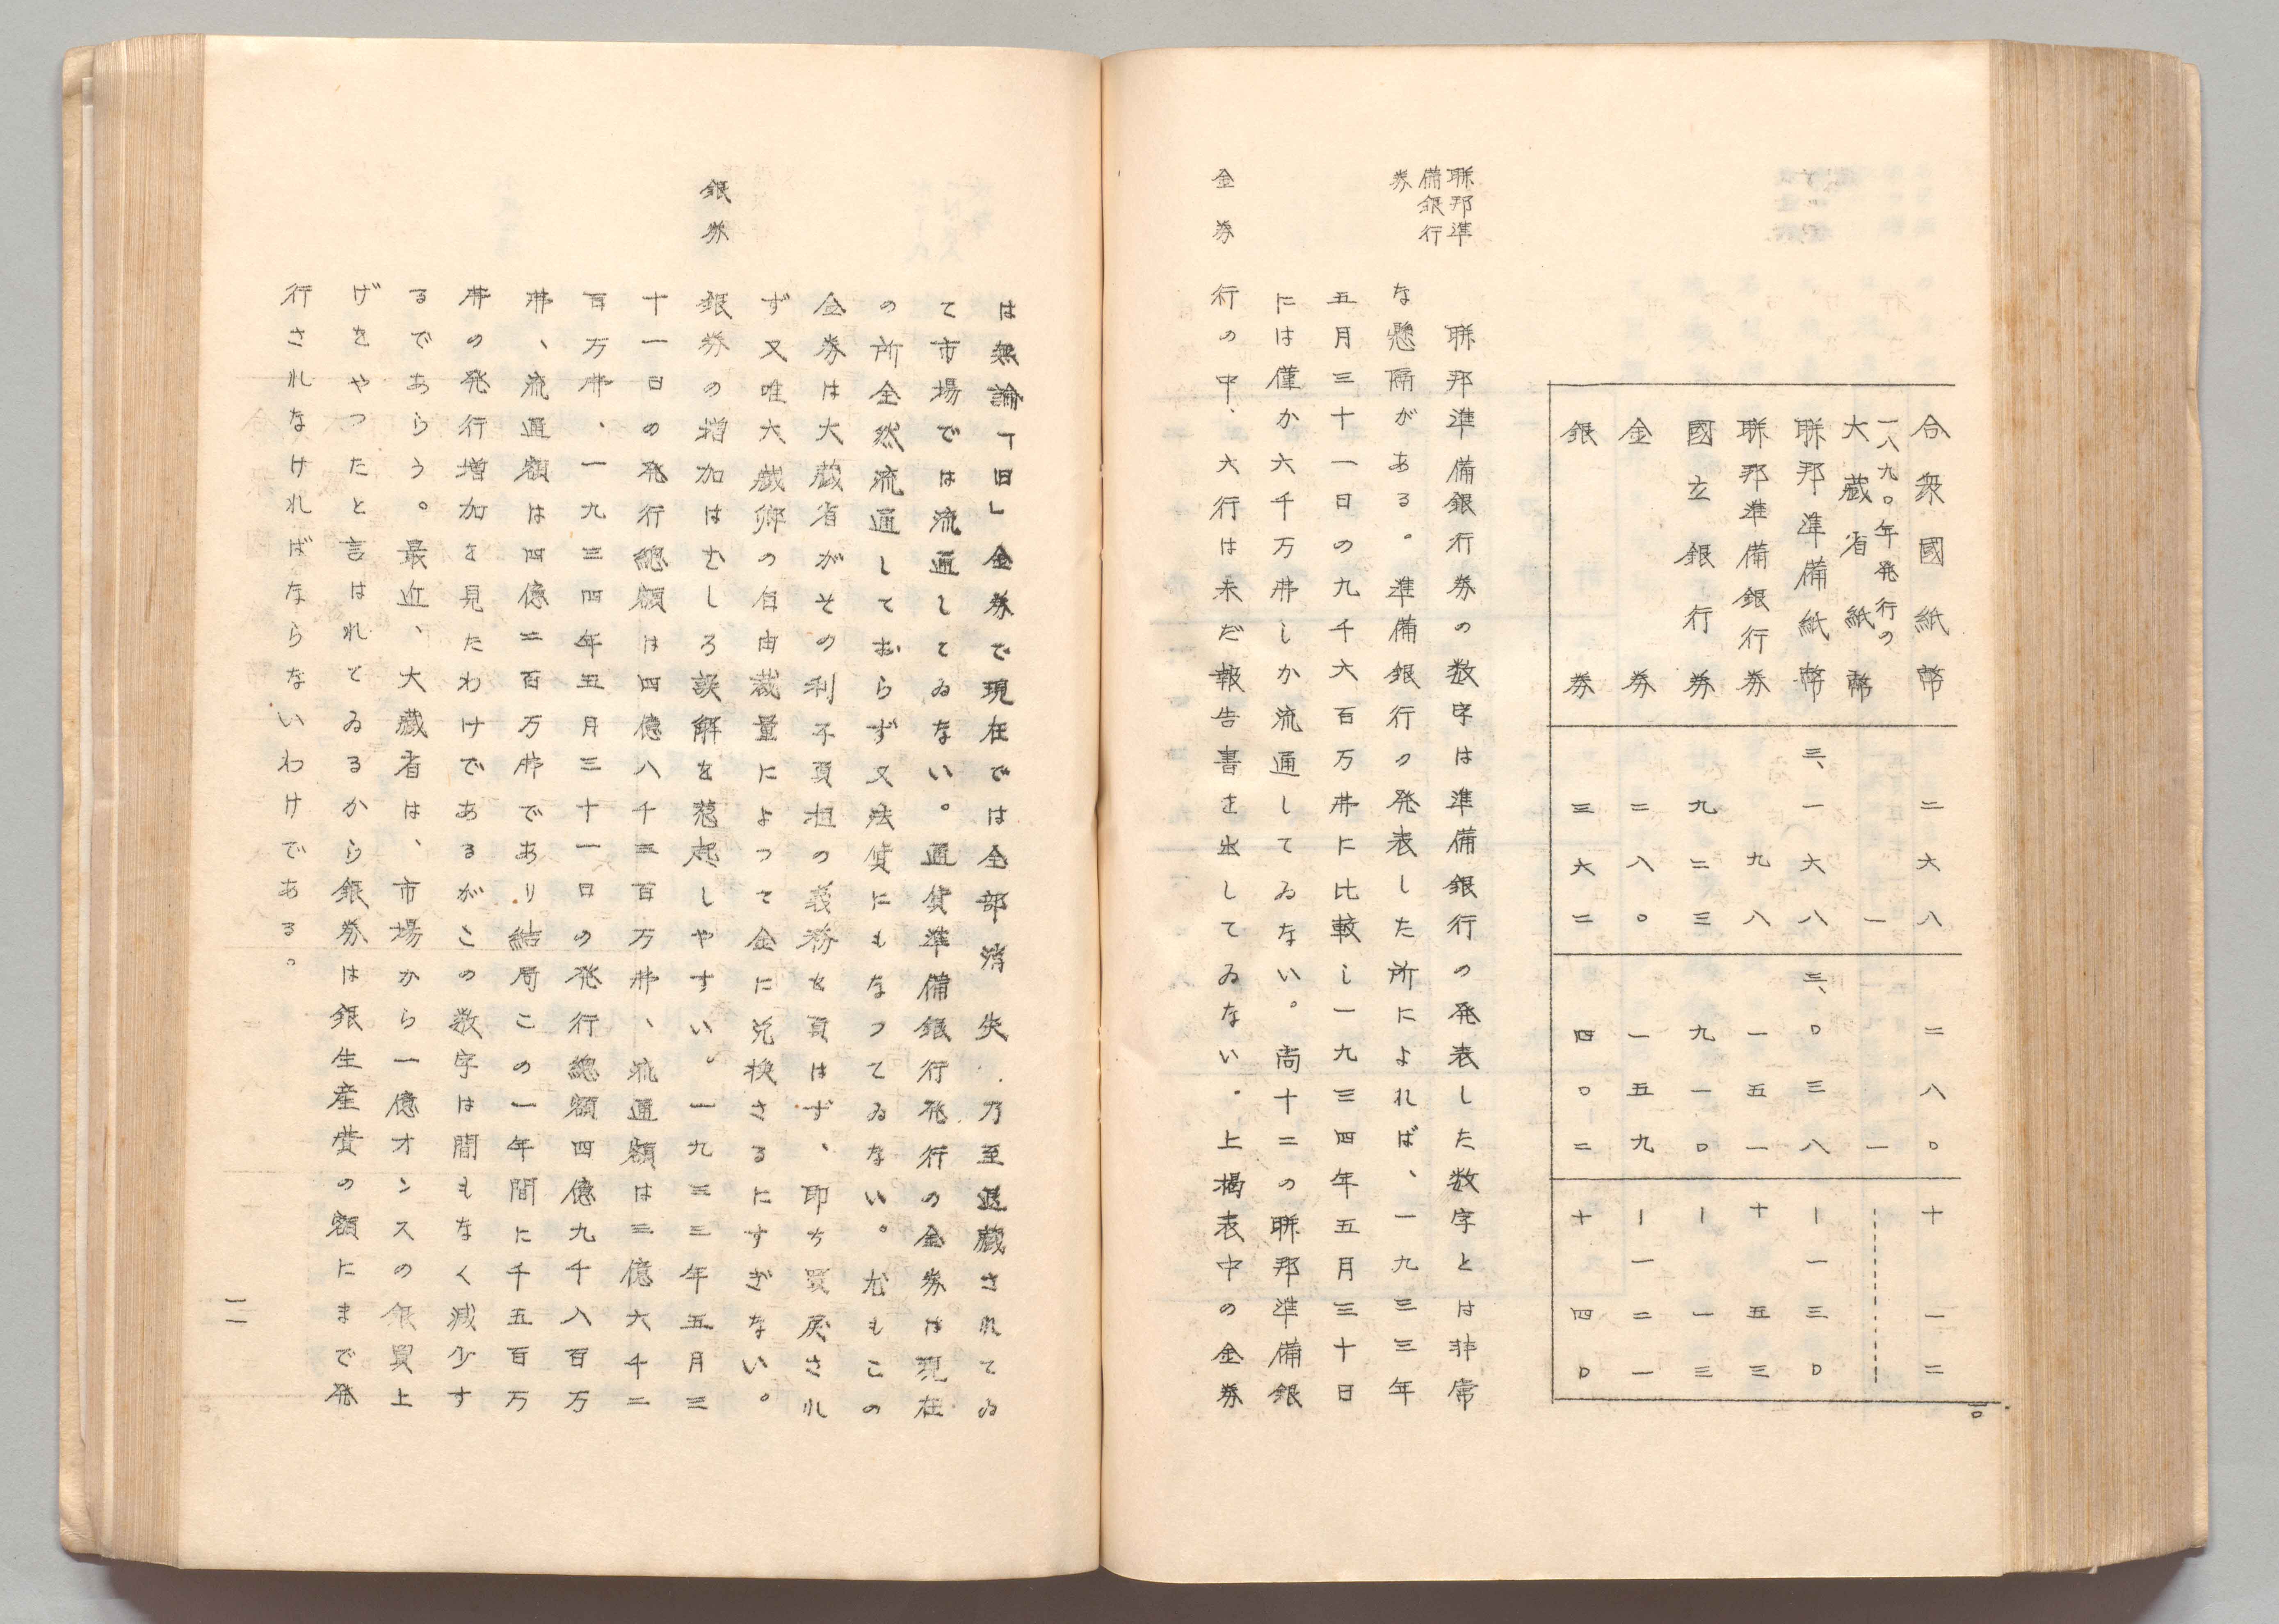 合衆國紙幣 二六八 二八〇 十一二
一八九〇年発行の
大蔵省紙幣 一 一
聯邦準備紙幣 三、一六八 三、〇三八 ー一三〇
聯邦準備銀行券 九八 一五一 十五三
國立銀行券 九二三 九一〇 ー一三
金券 二八〇 一五九 ー一二一
銀券 三六二 四〇二 十四〇
聯邦準
備銀行
券
聯邦準備銀行券の数字は準備銀行の発表した数字とは非常
な懸隔がある。準備銀行の発表した所によれば、一九三三年
五月三十一日の九千六百万弗に比較し一九三四年五月三十日
には僅か六千万弗しか流通してゐない。尚十二の聯邦準備銀
金券
行の中、六行は未だ報告書を出してゐない.上掲表中の金券
一〇
は無論「旧」金券で現在では全部消失乃至退蔵されてゐ
て市場では流通してゐない。通貨準備銀行発行の金券は現在
の所全然流通しておらず又法貨にもなつてゐない。尤もこの
金券は大蔵省がその利不負担の義務を負はず、即ち買戻され
ず又唯大蔵卿の自由裁量によつて金に兌換さるにすぎない。
銀券
銀券の増加はむしろ誤解を惹起しやすい。一九三三年五月三
十一日の発行總額は四億八千三百万弗、流通額は三億六千二
百万弗、一九三四年五月三十一日の発行總額四億九千八百万
弗、流通額は四億二百万弗であり結局この一年間に千五百万
弗の発行増加を見たわけであるがこの数字は間もなく減少す
るであらう。最近、大蔵省は、市場から一億オンスの銀買上
げをやつたと言はれてゐるから銀券は銀生産費の額にまで発
行されなければならないわけである。
一一